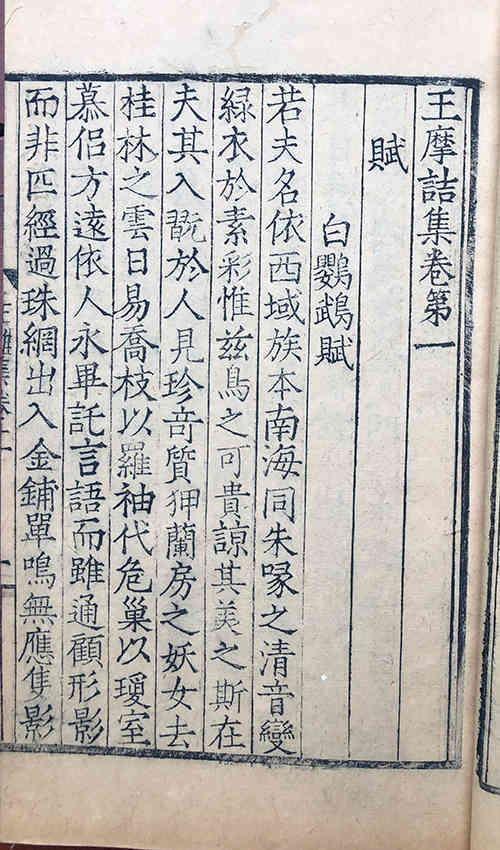 王摩詰集卷第一
賦
白鸚鵡賦
若夫名依西域族本南海同朱喙之清音變
綠衣於素彩惟兹鳥之可貴諒其美之斯在
夫其入翫於人見珍奇質狎蘭房之妖女去
桂林之雲日易喬枝以羅袖代危巢以瓊室
慕侣方遠依人永畢託言語而雖通顧形影
而非匹經過珠網出入金鋪單鳴無應隻影